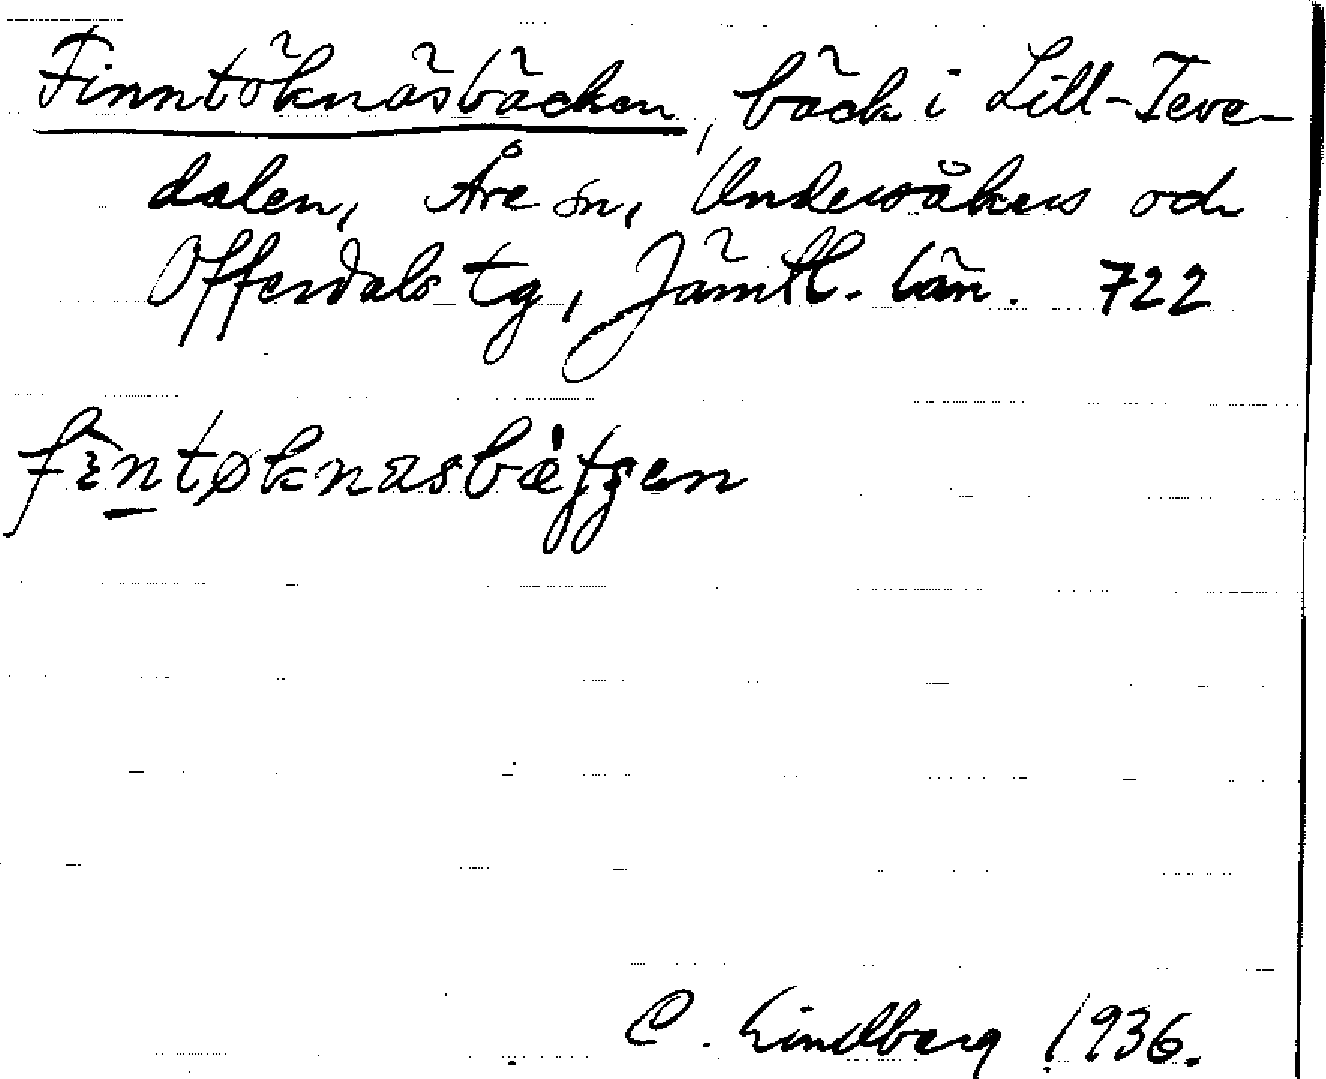 Finntöknäsbäcken, bäck i Lill-Teve-
dalen, Åre sn, Undersåkers och
Offerdals tg, Jämtl. län. 722
C. Lindberg 1936.